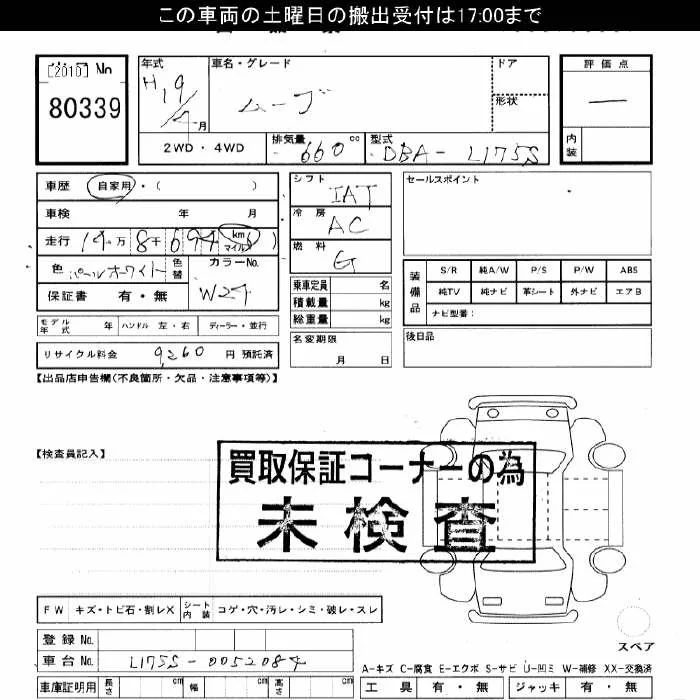 この車両の土曜日の搬出受付は17:00まで
[2010] No
80339
年式
H 19/4月
車名・グレード
ムーブ
ドア
形状
評価点
—
内装
2WD・4WD
排気量 660 cc
型式 DBA-L175S
車歴 自家用・( )
車検 年 月
走行 14万8千694 km マイル
色 パールホワイト 色替
カラーNo. W24
保証書 有・無
シフト IAT
冷房 AC
燃料 G
乗車定員 名
積載量 kg
総重量 kg
セールスポイント
装備品
S/R 純A/W P/S P/W ABS
純TV 純ナビ 革シート 外ナビ エアB
ナビ型番:
モデル年式 年 ハンドル 左・右 ディーラー・並行
リサイクル料金 9,260 円 預託済
名変期限
月 日
後日品
【出品店申告欄(不良箇所・欠品・注意事項等)】
【検査員記入】
買取保証コーナーの為
未検査
FW キズ・トビ石・割レX シート内装 コゲ・穴・汚レ・シミ・破レ・スレ
登録 No.
車台 No. L175S-0052084
車庫証明用 長さ cm 幅 cm 高さ cm
スペア
A-キズ C-腐食 E-エクボ S-サビ U-凹ミ W-補修 XX-交換済
工具 有・無 ジャッキ 有・無